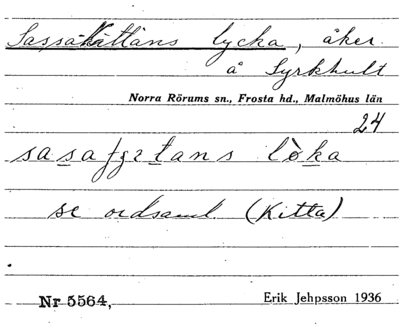 Sassakittans lycka, åker
å Syrkhult
Norra Rörums sn., Frosta hd., Malmöhus län
24
lo̱ka
se ordsaml. (Kitta)
Nr 5564, Erik Jehpsson 1936